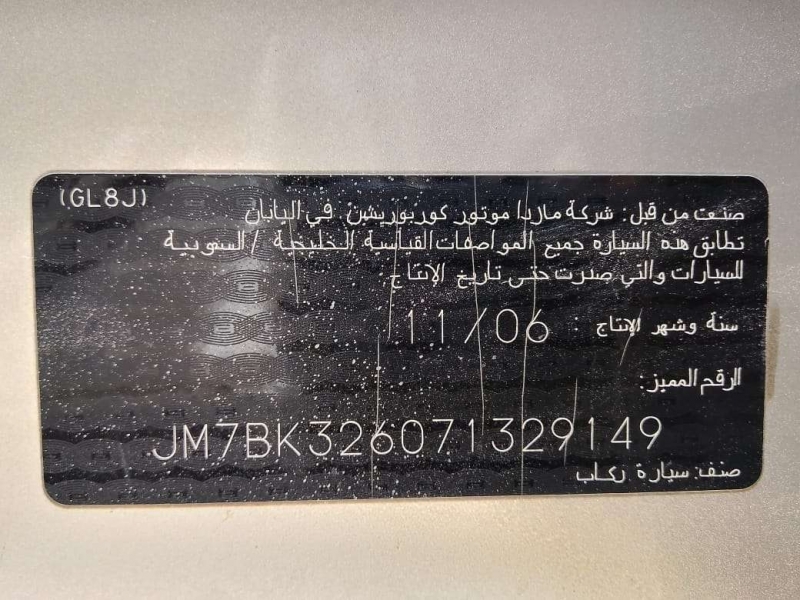 (GL8J)
صنعت من قبل: شركة مازدا موتور كوربوريشين في اليابان
تطابق هذه السيارة جميع المواصفات القياسية الخليجية / السعودية
للسيارات والتي صدرت حتى تاريخ الإنتاج
سنة وشهر الإنتاج : 11/06
الرقم المميز:
JM7BK326071329149
صنف: سيارة ركاب